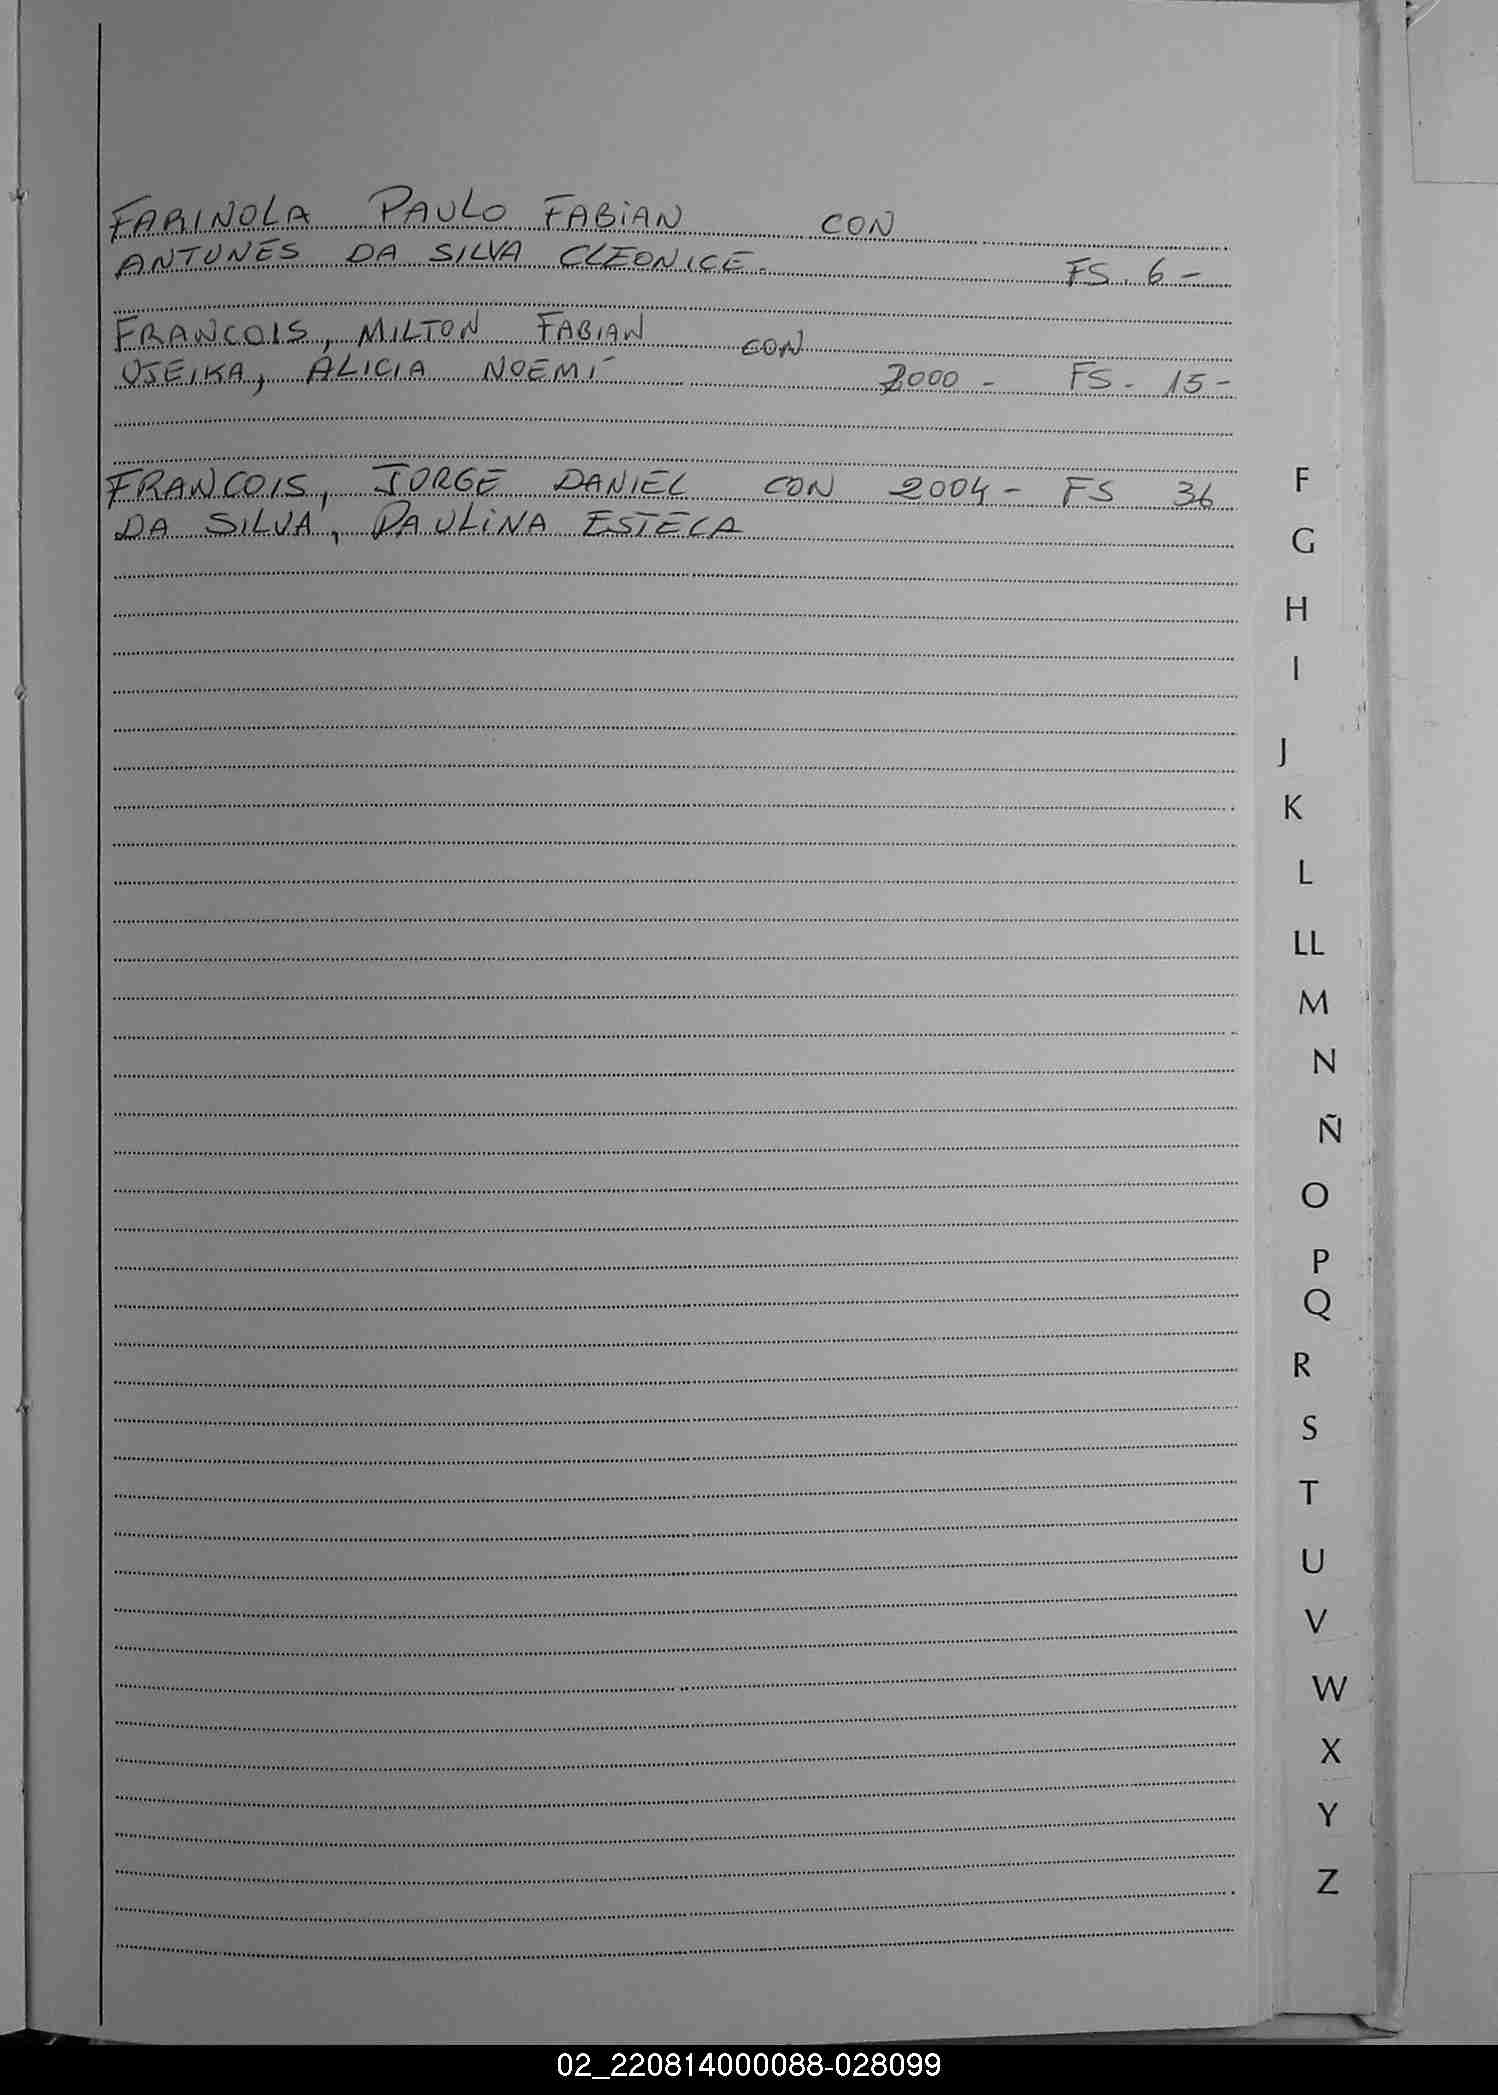 FARINOLA PAULO FABIAN CON
ANTUNES DA SILVA CLEONICE. FS. 6 -
FRANCOIS, MILTON FABIAN CON
OJEIKA, ALICIA NOEMÍ 2000 - FS - 15 -
FRANCOIS, JORGE DANIEL CON 2004 - FS 36
DA SILVA, PAULINA ESTELA
F
G
H
I
J
K
L
LL
M
N
Ñ
O
P
Q
R
S
T
U
V
W
X
Y
Z
02_220814000088-028099